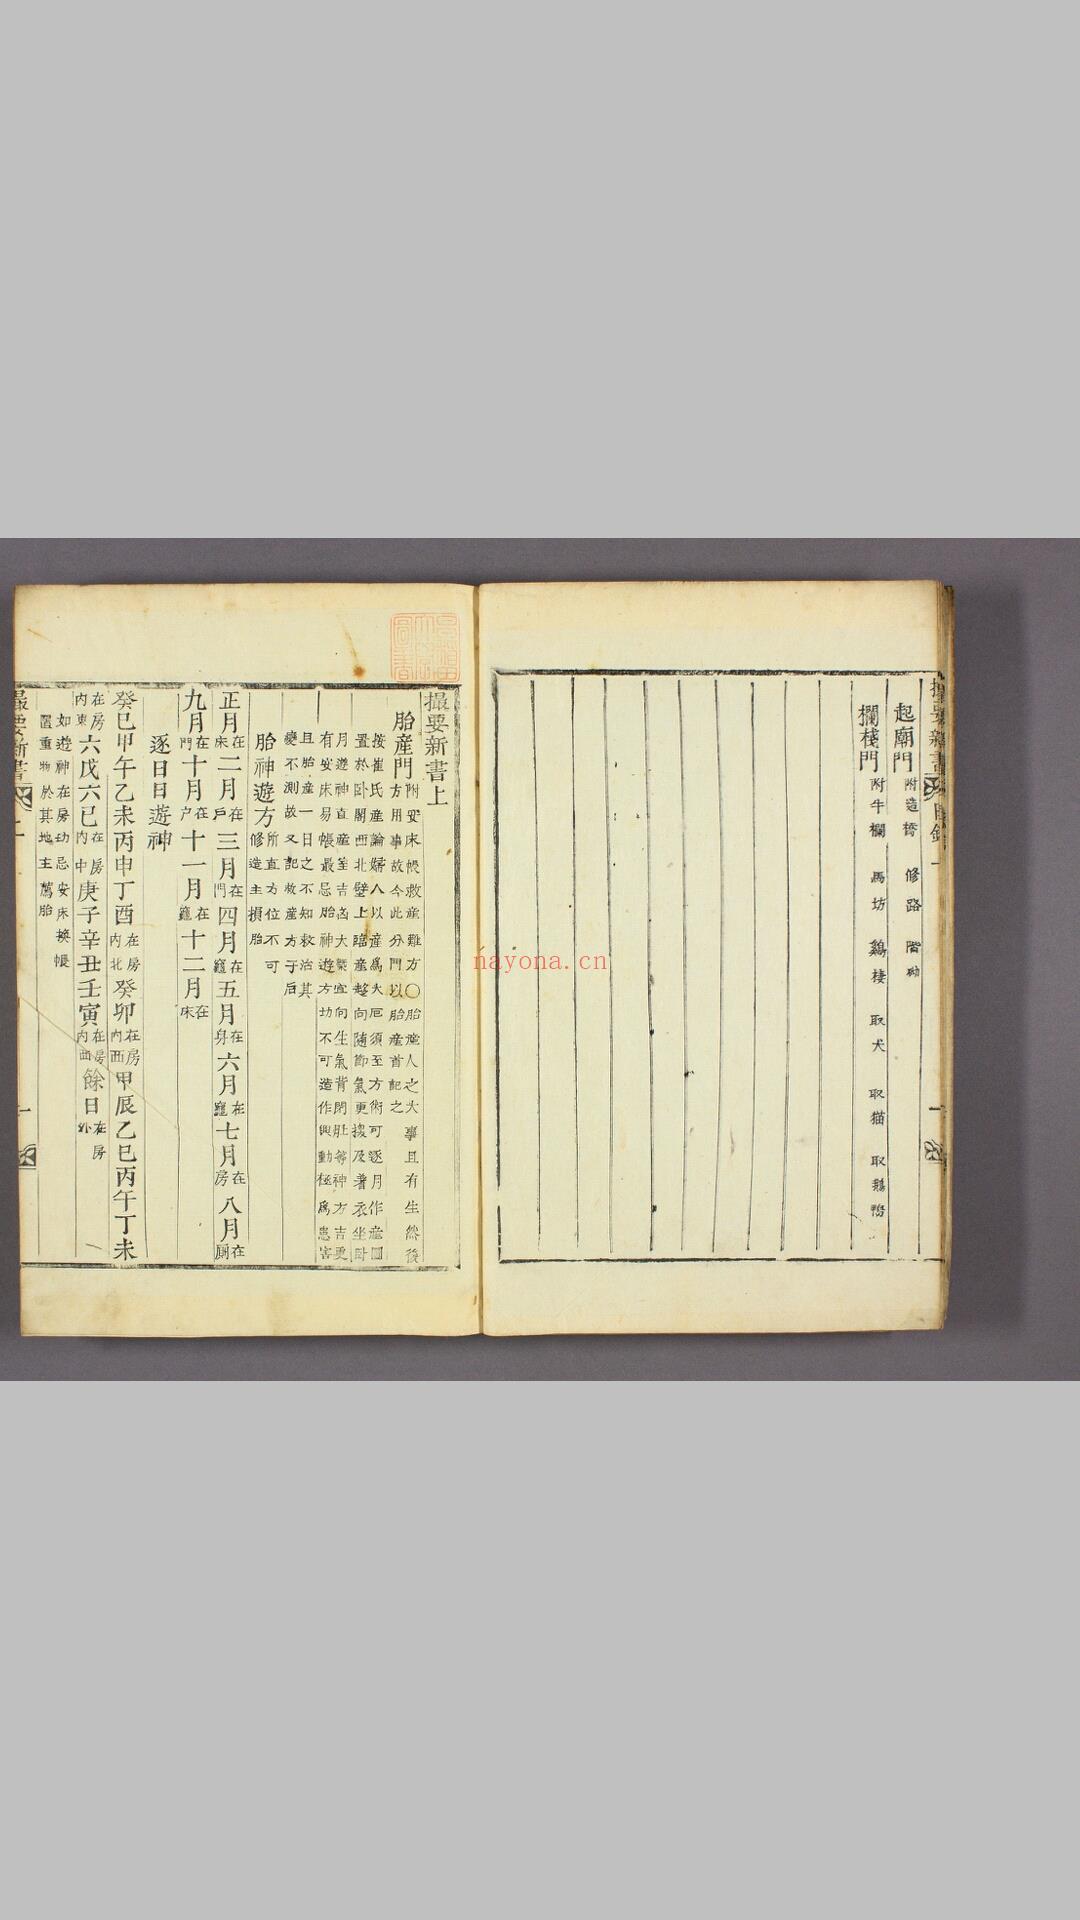 起廟門 附造橋 修路 階砌
欄棧門 附牛欄 馬坊 鷄棲 取犬 取猫 取鵝鴨
撮要新書上
胎産門 附安床帳救産難方〇胎産人之大事且有生然後
方用事故今此分門以胎産首記之
按崔氏産論婦人以産爲大厄須至方術可逐月作産圖
置於卧閣西北壁上臨産越向隨節氣更換及着衣坐卧
月遊神直産筌吉凶大槩宜向生氣背閉肚等神方吉更
有安床易帳最忌胎神遊方切不可造作興動極爲患害
且胎産一日之不知救治其
變不測故又記救産方于后
胎神遊方 所直方位不可
修造主損胎
正月在床二月在戶三月在門四月在竈五月在身六月在竈七月在房八月在厠
九月在門十月在户十一月在竈十二月在床
逐日日遊神
癸巳甲午乙未丙申丁酉在房内北癸卯在房内西甲辰乙巳丙午丁未
在房内東六戊六己在房内中庚子辛丑壬寅在房内西餘日在房外
如遊神在房切忌安床換帳
置重物於其地主墮胎
撮要新書
ńayona.cn